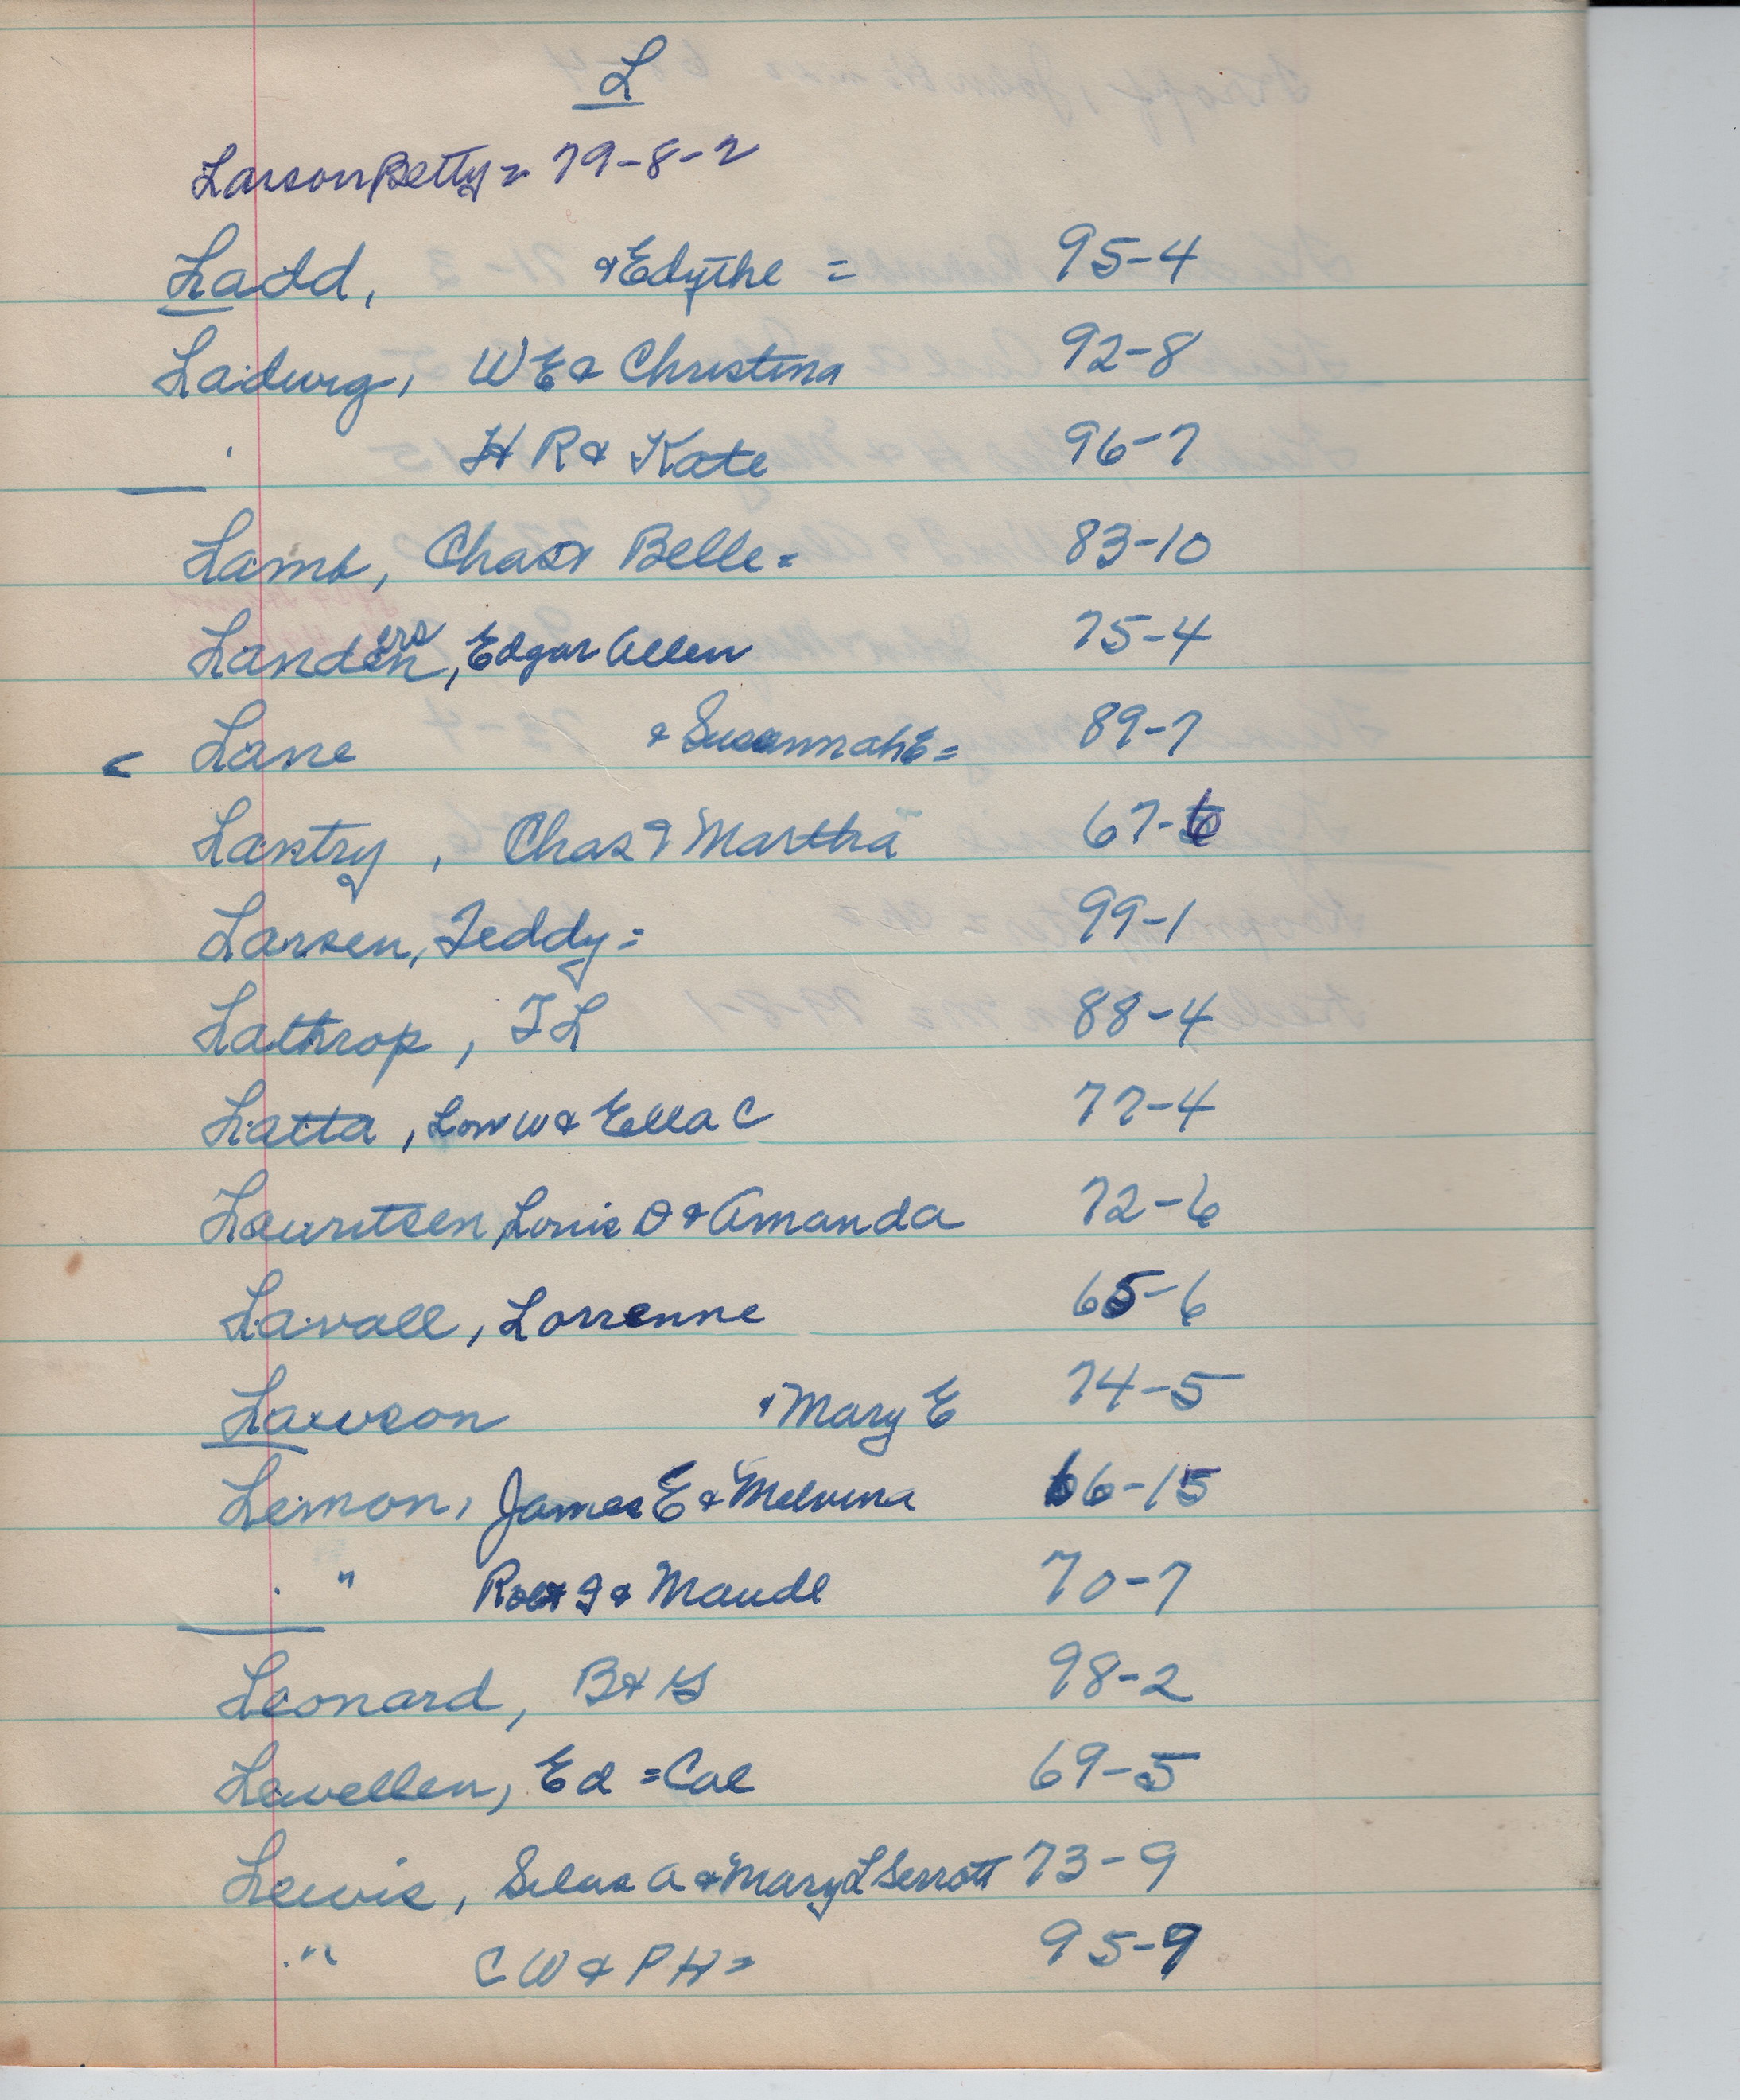 L
Larson Betty = 79-8-2
Ladd, & Edythe = 95-4
Ladwig, W E & Christina 92-8
H R & Kate 96-7
Lamb, Chas & Belle = 83-10
Landers, Edgar Allen 75-4
Lane & Susannah E = 89-7
Lantry, Chas & Martha 67-6
Larsen, Teddy = 99-1
Lathrop, F L 88-4
Latta, Lon W & Ella C 77-4
Lauritsen, Louis D & Amanda 72-6
Lavall, Lorrenne 65-6
Lawson & Mary E 74-5
Lemon, James E & Melvina 66-15
" Robt & Maude 70-7
Leonard, B & G 98-2
Lewellen, Ed = Cal 69-5
Lewis, Silas A & Mary L Serrott 73-9
" C W & P H = 95-9